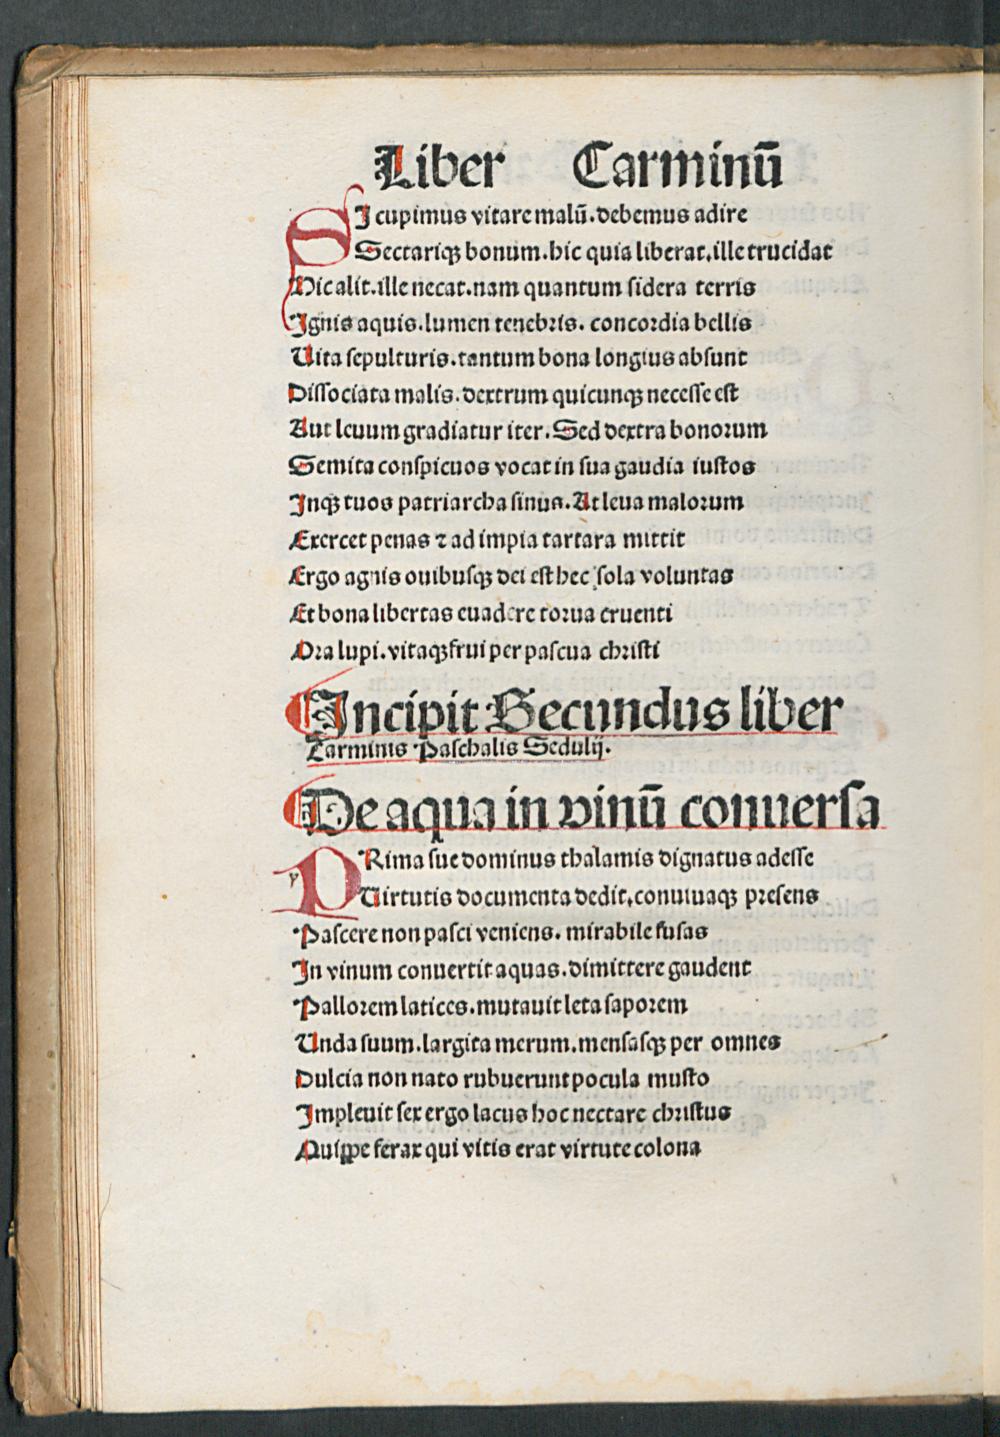 Liber Carminū
SI cupimus vitare malū. debemus adire
Sectariqꝫ bonum. hic quia liberat, ille trucidat
Hic alit. ille necat. nam quantum sidera terris
Ignis aquis. lumen tenebris. concordia bellis
Uita sepulturis. tantum bona longius absunt
Dissociata malis. dextrum quicunqꝫ necesse est
Aut leuum gradiatur iter. Sed dextra bonorum
Semita conspicuos vocat in sua gaudia iustos
Inqꝫ tuos patriarcha sinus. At leua malorum
Exercet penas ⁊ ad impia tartara mittit
Ergo agnis ouibusqꝫ dei est hec sola voluntas
Et bona libertas euadere torua cruenti
Ora lupi. vitaqꝫ frui per pascua christi
¶ Incipit Secundus liber
Carminis Paschalis Sedulij.
¶ De aqua in vinū conuersa
PRima sue dominus thalamis dignatus adesse
y
Uirtutis documenta dedit, conuiuaqꝫ presens
Pascere non pasci veniens. mirabile fusas
In vinum conuertit aquas. dimittere gaudent
Pallorem latices. mutauit leta saporem
Unda suum. largita merum. mensasqꝫ per omnes
Dulcia non nato rubuerunt pocula musto
Impleuit sex ergo lacus hoc nectare christus
Quippe ferax qui vitis erat virtute colona